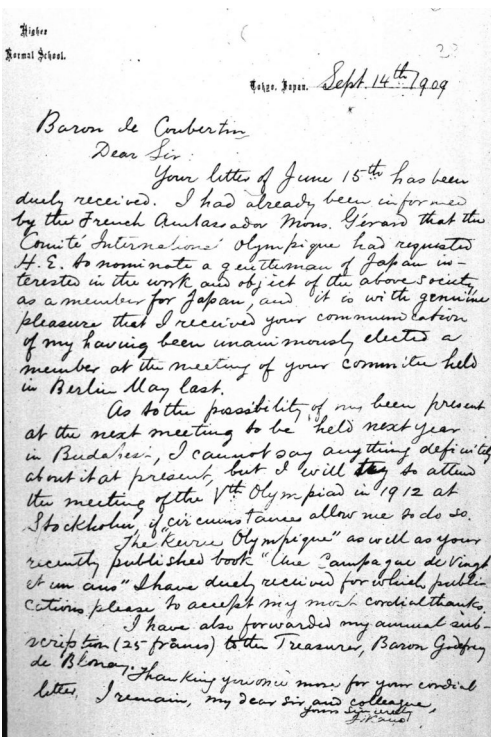 Higher
Normal School.
Tokyo, Japan. Sept. 14th 1909
Baron de Coubertin
Dear Sir:
Your letter of June 15th has been
duely received. I had already been informed
by the French Ambassador Mons. Gérard that the
Comité International Olympique had requested
H.E. to nominate a gentleman of Japan in-
terested in the work and object of the above society
as a member for Japan, and it is with genuine
pleasure that I received your communication
of my having been unanimously elected a
member at the meeting of your committee held
in Berlin May last.
As to the possibility of my been present
at the next meeting to be held next year
in Budapest, I cannot say anything definitely
about it at present, but I will try to attend
the meeting of the Vth Olympiad in 1912 at
Stockholm, if circumstances allow me to do so.
The "Revue Olympique" as well as your
recently published book "Une Campagne de Vingt
et un ans" I have duely received for which publi-
cations please to accept my most cordial thanks.
I have also forwarded my annual sub-
scription (25 francs) to the Treasurer, Baron Godfrey
de Blonay.
Thanking you once more for your cordial
letter, I remain, my dear sir and colleague,
yours sincerely
J. Kano